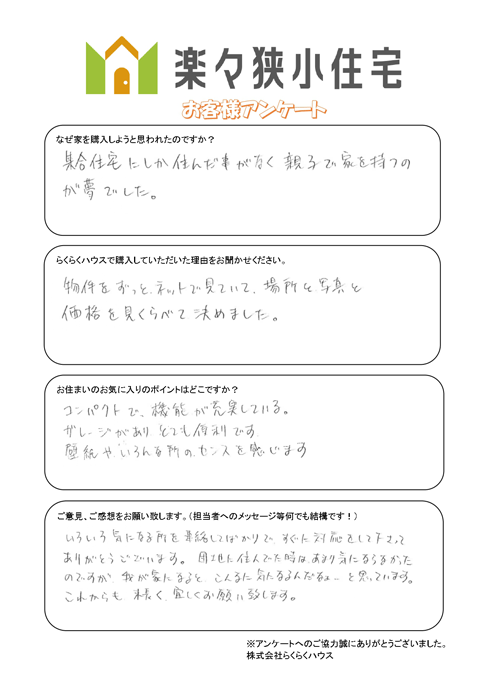 楽々狭小住宅
お客様アンケート
なぜ家を購入しようと思われたのですか？
集合住宅にしか住んだ事がなく 親子で家を持つの
が夢でした。
らくらくハウスで購入していただいた理由をお聞かせください。
物件をずっと、ネットで見ていて、場所と写真と
価格を見くらべて決めました。
お住まいのお気に入りのポイントはどこですか？
コンパクトで、機能が充実している。
ガレージがあり とても便利です。
壁紙や いろんな所の、センスを感じます
ご意見、ご感想をお願い致します。（担当者へのメッセージ等何でも結構です！）
いろいろ気になる所を連絡してばかりで、すぐに対応をして下さって
ありがとうございます。団地に住んでた時は、あまり気にならなかった
のですが、我が家になると、こんなに気になるんだなぁ… と思っています。
これからも 末長く、宜しくお願い致します。
※アンケートへのご協力誠にありがとうございました。
株式会社らくらくハウス